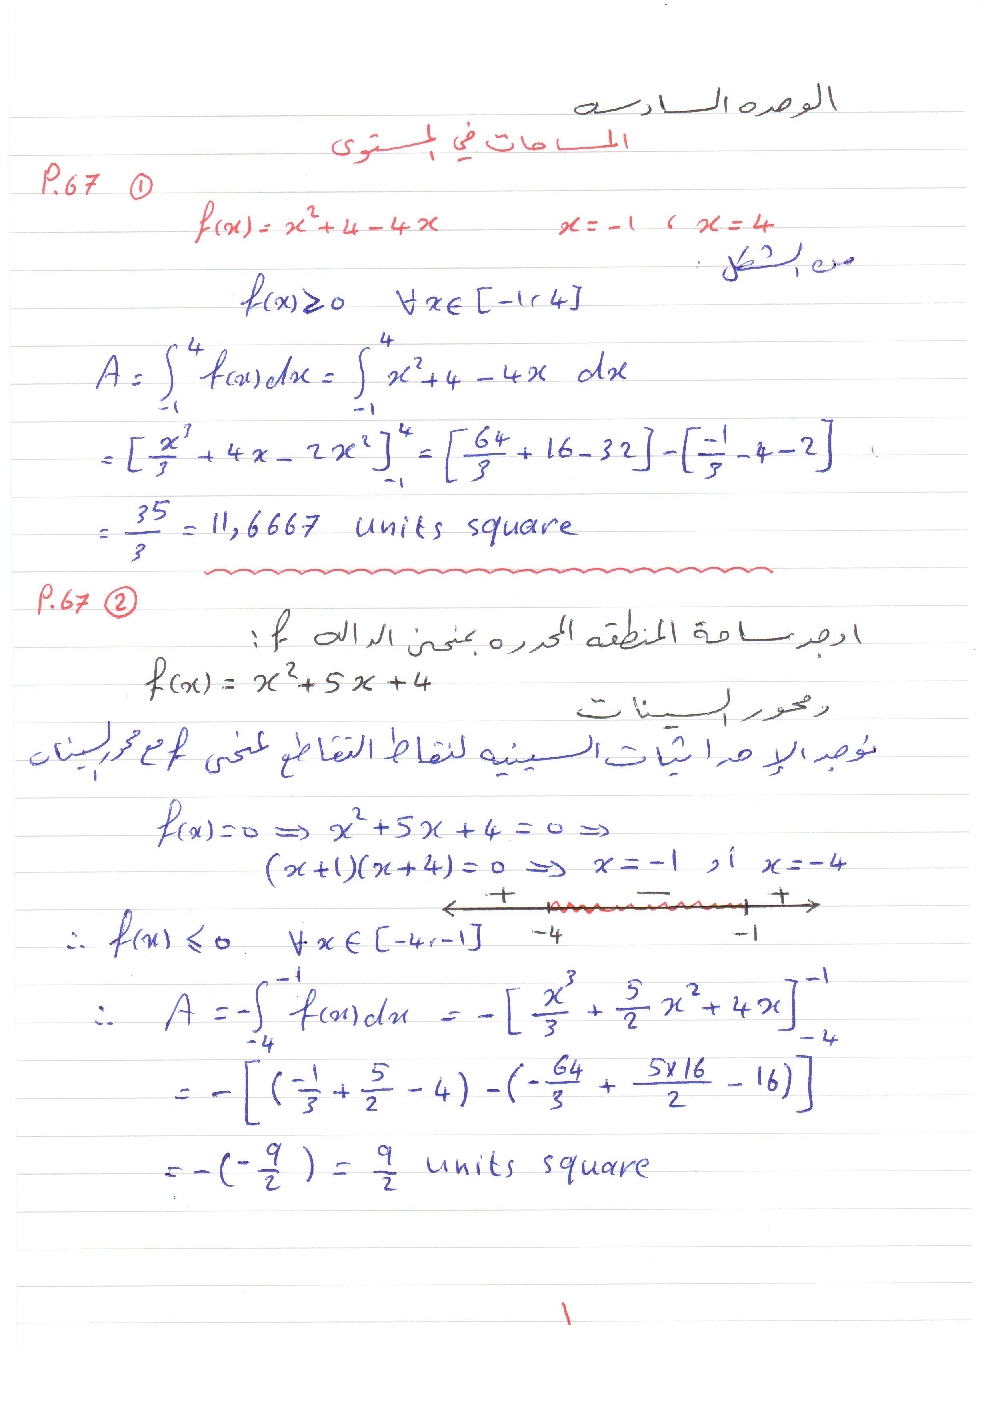 الوحده السادسه
المساحات في المستوى
P.67 ①
f(x) = x² + 4 - 4x x = -1 ، x = 4
من الشكل :
f(x) ≥ 0 ∀ x ∈ [-1, 4]
A = ∫₋₁⁴ f(x) dx = ∫₋₁⁴ x² + 4 - 4x dx
= [x³/3 + 4x - 2x²]₋₁⁴ = [64/3 + 16 - 32] - [-1/3 - 4 - 2]
= 35/3 = 11,6667 units square
P.67 ②
اوجد مساحة المنطقه المحدده بمنحنى الداله f :
f(x) = x² + 5x + 4
ومحور السينات
نوجد الإحداثيات السينيه لنقاط التقاطع لمنحنى f مع محور السينات
f(x) = 0 ⇒ x² + 5x + 4 = 0 ⇒
(x+1)(x+4) = 0 ⇒ x = -1 أو x = -4
+ − +
-4 -1
∴ f(x) ≤ 0 ∀ x ∈ [-4, -1]
∴ A = -∫₋₄⁻¹ f(x) dx = -[x³/3 + 5/2 x² + 4x]₋₄⁻¹
= -[(-1/3 + 5/2 - 4) - (-64/3 + 5×16/2 - 16)]
= -(-9/2) = 9/2 units square
١